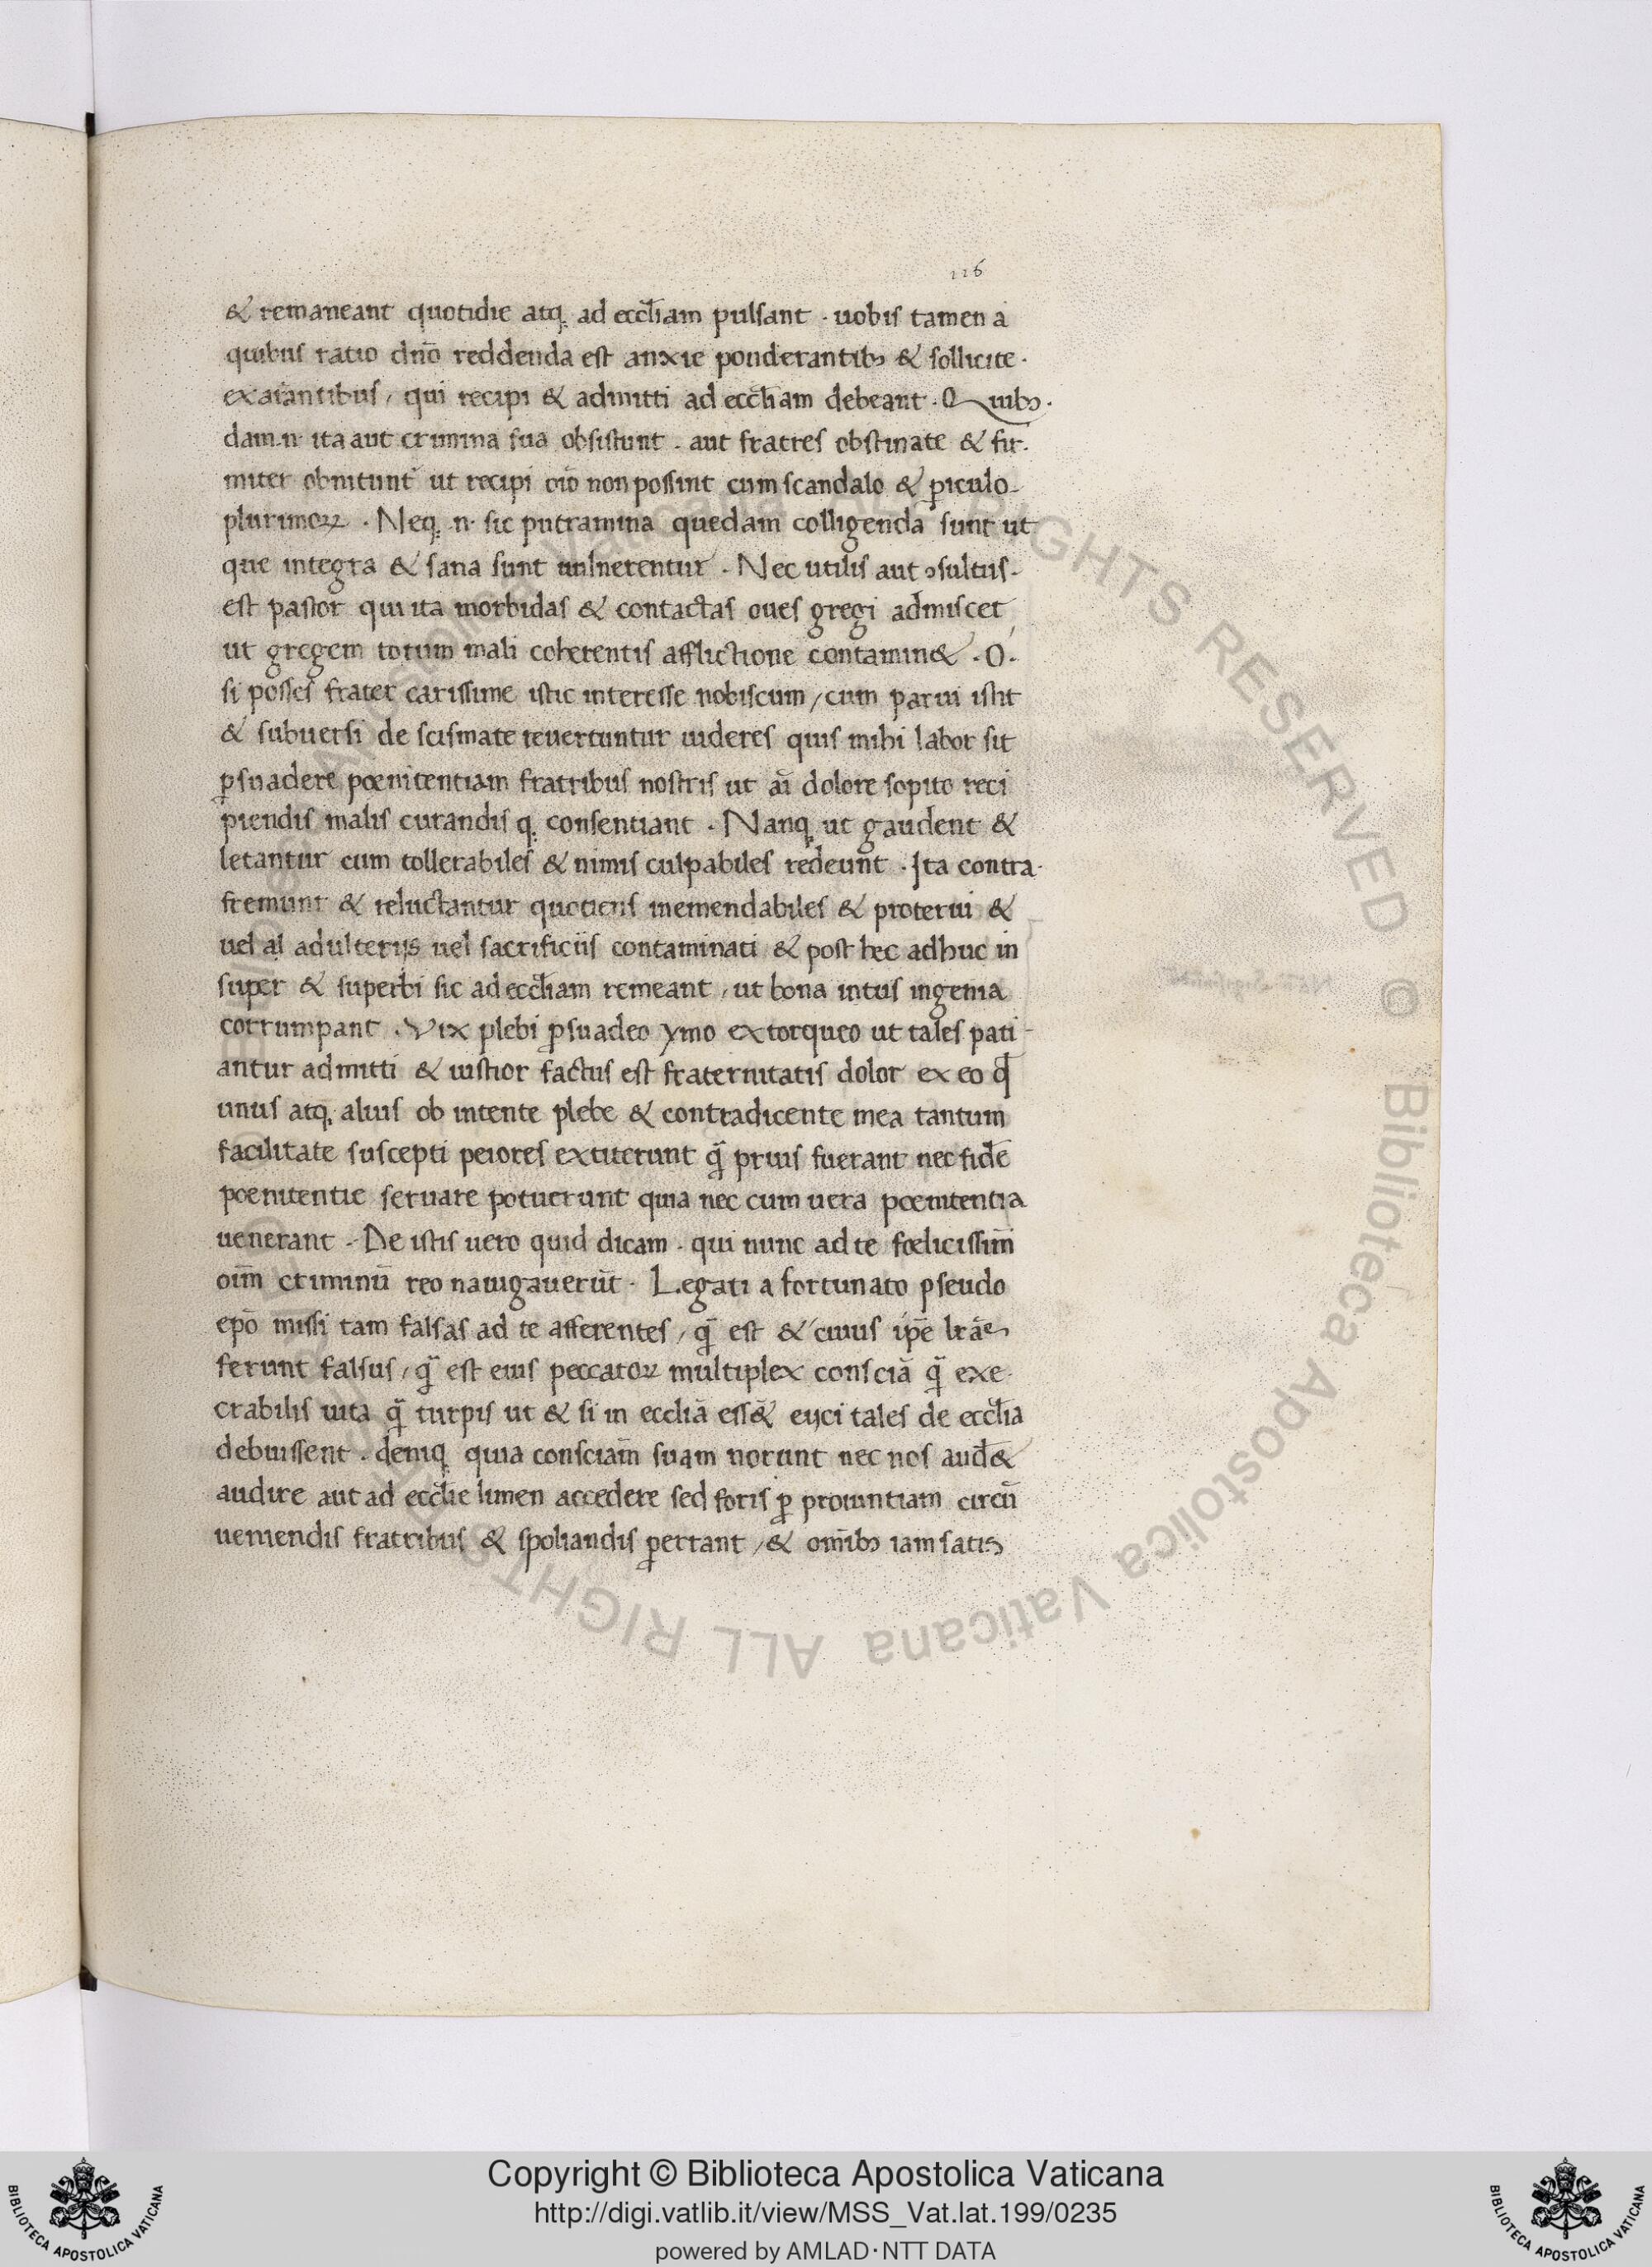 116
& remaneant quotidie atq; ad eccl̄iam pulsant · uobis tamen a
quibus ratio dn̄o reddenda est anxie ponderantibꝫ & sollicite ·
exaīantibus / qui recipi & admitti ad eccl̄iam debeant · Quibꝫ ·
dam ·n· ita aut crimina sua obsistunt · aut fratres obstinate & fir·
miter obnitunt᷑ ut recipi oīo non possint cum scandalo & ꝑiculo
plurimoꝝ · Neq; ·n· sic putramina quedam colligenda sunt ut
que integra & sana sunt uulnerentur · Nec utilis aut ꝯsultus ·
est pastor qui ita morbidas & contactas oues gregi admiscet
ut gregem totum mali coherentis afflictione contamin& · O ·
si posses frater carissime istic interesse nobiscum / cum parui isti
& subuersi de scismate reuertuntur uideres quis mihi labor sit
ꝑsuadere pœnitentiam fratribus nostris ut aī dolore sopito reci
piendis malis curandis q; consentiant · Nanq; ut gaudent &
letantur cum tollerabiles & nimis culpabiles redeunt · Ita contra ·
fremunt & reluctantur quotiens inemendabiles & proterui &
uel al adulterijs uel sacrificiis contaminati & post hec adhuc in
super & superbi sic ad eccl̄iam remeant / ut bona intus ingenia
corrumpant · Vix plebi ꝑsuadeo ymo extorqueo ut tales pati-
antur admitti & iustior factus est fraternitatis dolor ex eo ꝙ
unus atq; alius ob intente plebe & contradicente mea tantum
facilitate suscepti peiores extiterunt q̄ prius fuerant nec fidē
poenitentie seruare potuerunt quia nec cum uera poenitentia
uenerant · De istis uero quid dicam · qui nunc ad te fœlicissim̄
oīm criminū reo nauigauerūt · Legati a fortunato pseudo
epō missi tam falsas ad te afferentes / q̄ est & cuius ip̄e lrās
ferunt falsus / q̄ est eius peccatoꝝ multiplex consciā q̄ exe·
crabilis uita q̄ turpis ut & si in eccliā ess& eijci tales de eccl̄ia
debuissent · deniq; quia consciam̄ suam norunt nec nos aud&
audire aut ad eccl̄ie limen accedere sed foris ꝑ prouintiam circū
ueniendis fratribus & spoliandis ꝑerrant / & omībꝫ iam satis
Copyright © Biblioteca Apostolica Vaticana
http://digi.vatlib.it/view/MSS_Vat.lat.199/0235
powered by AMLAD·NTT DATA